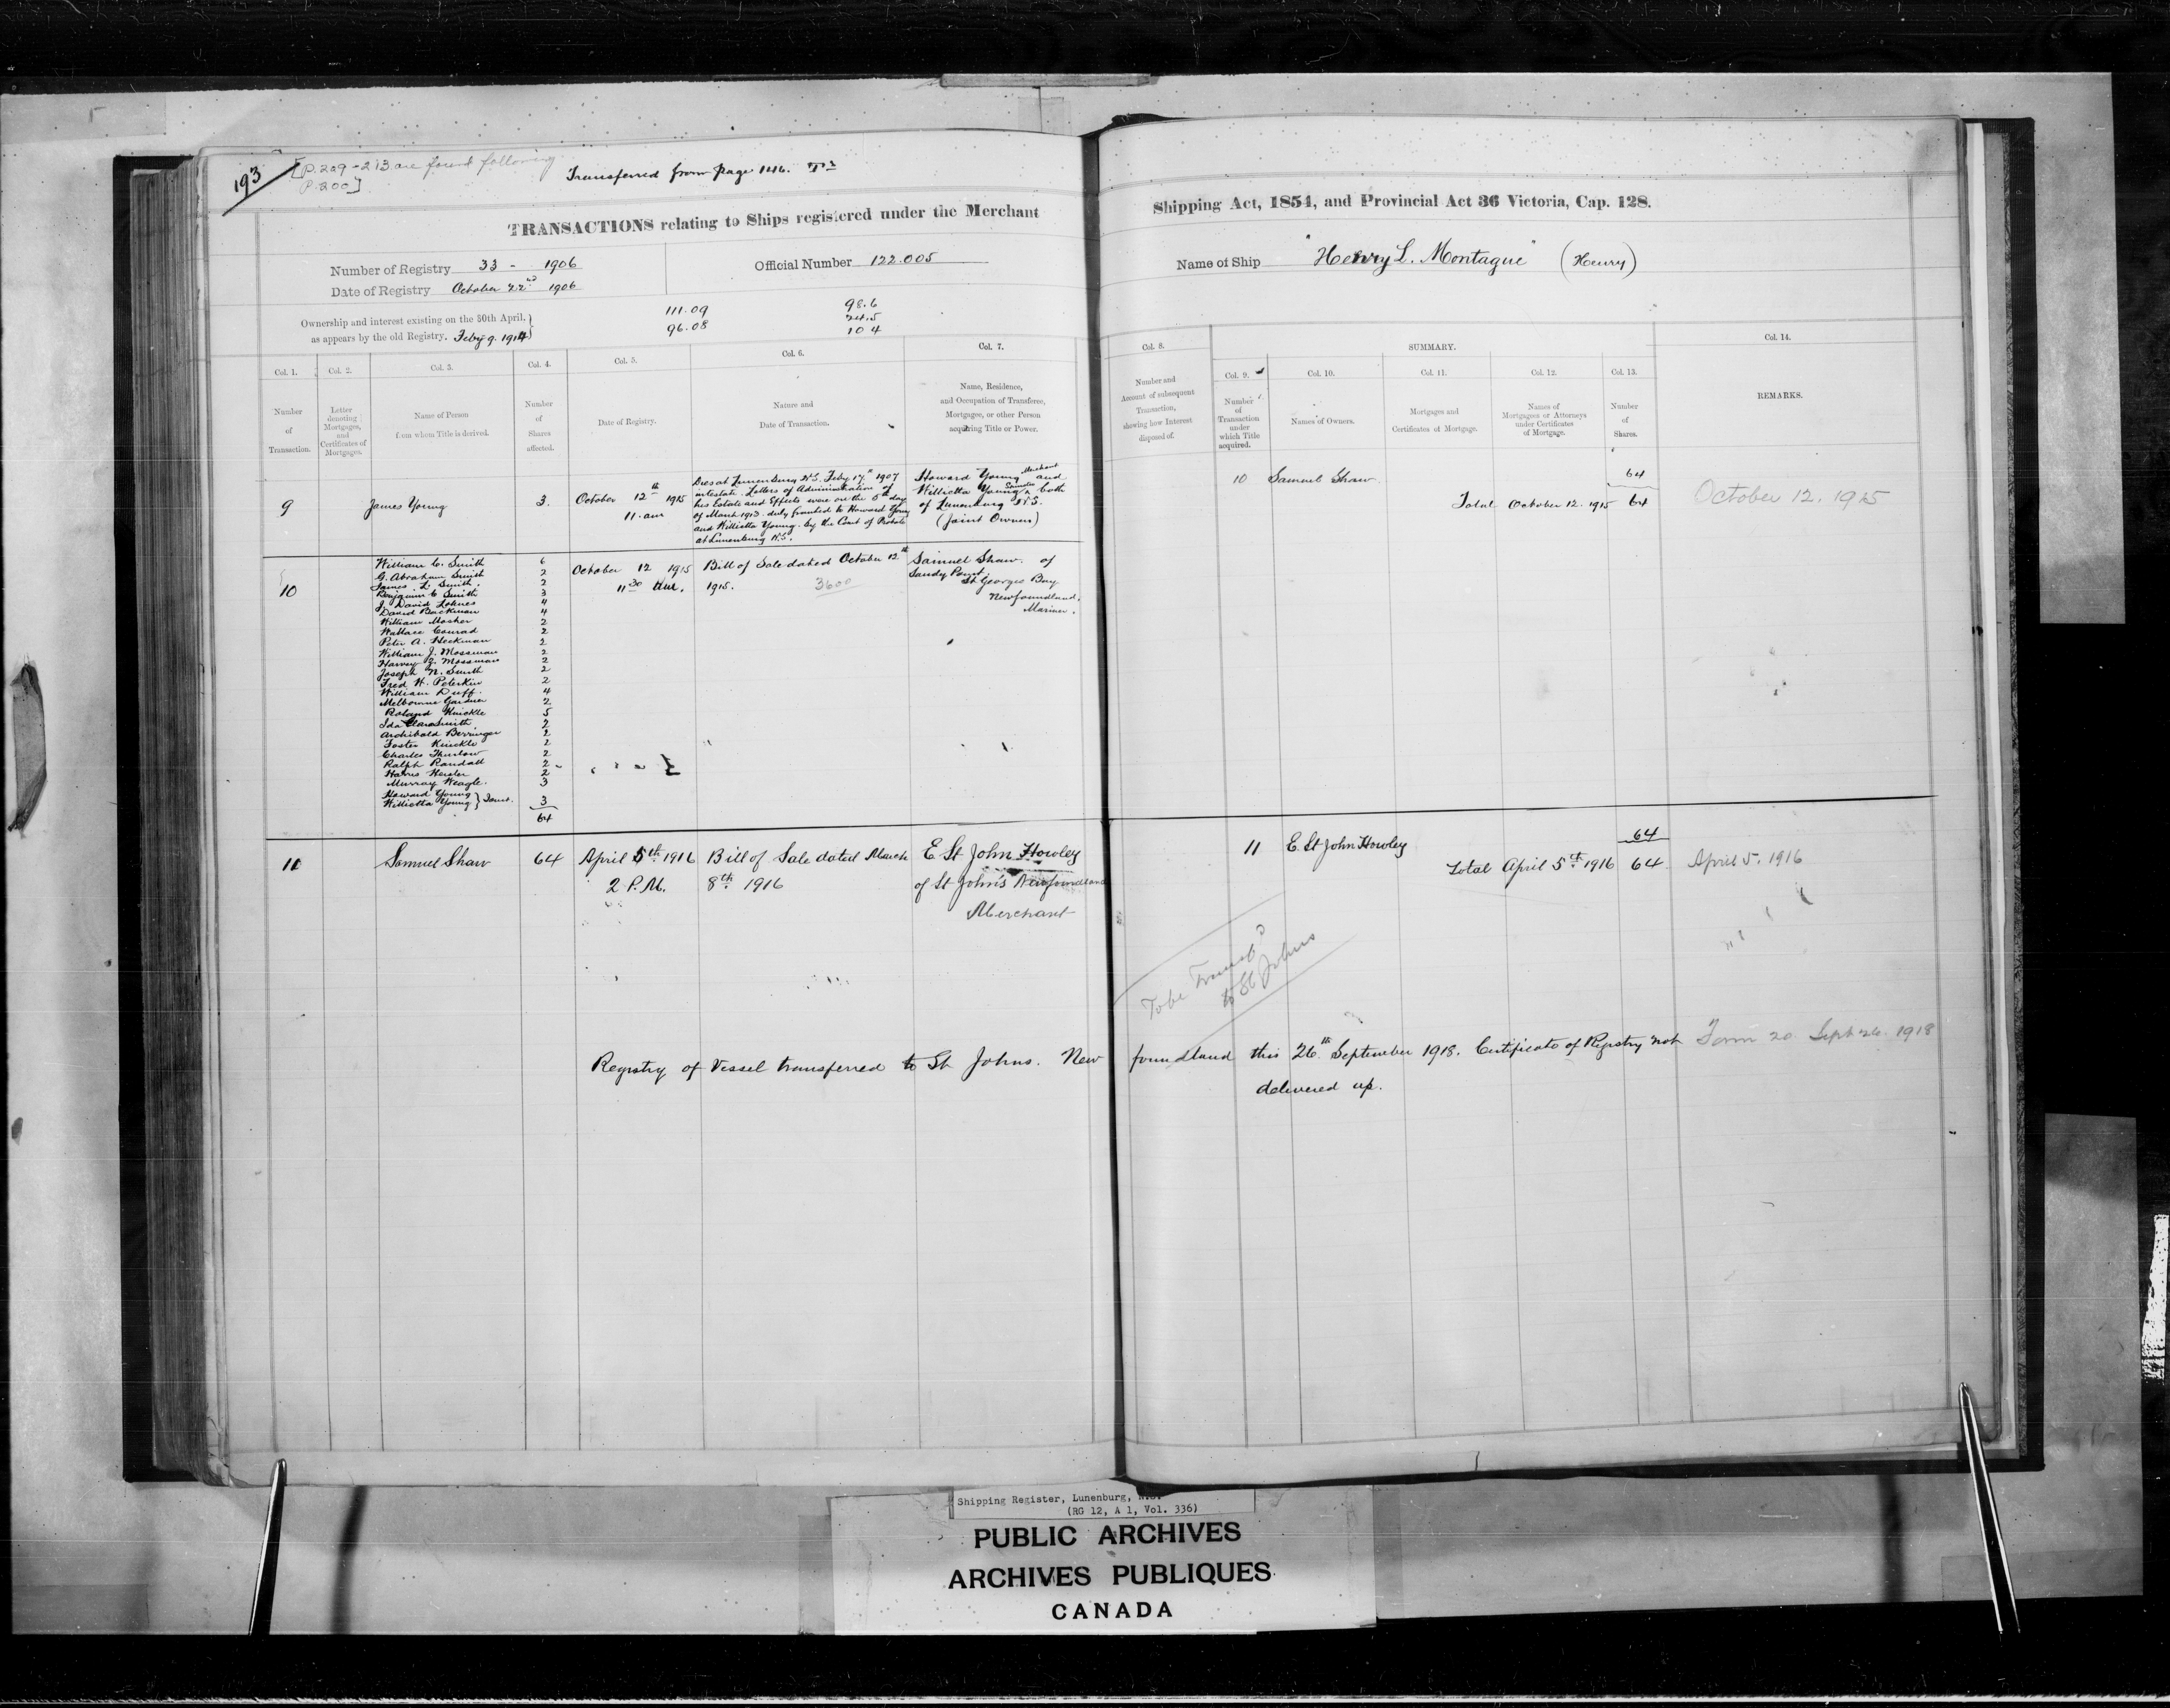 193
[P. 209-213 are found following
P. 200]
Transferred from page 146.
TRANSACTIONS relating to Ships registered under the Merchant
Shipping Act, 1854, and Provincial Act 36 Victoria, Cap. 128.
Number of Registry 33 - 1906
Date of Registry October 22nd 1906
Official Number 122.005
Name of Ship "Henry L. Montague" (Henry)
Ownership and interest existing on the 30th April,
as appears by the old Registry. Feby 9. 1914
111.09
96.08
98.6
24.5
10 4
Col. 1.
Number
of
Transaction.
Col. 2.
Letter
denoting
Mortgages,
and
Certificates of
Mortgages.
Col. 3.
Name of Person
from whom Title is derived.
Col. 4.
Number
of
Shares
affected.
Col. 5.
Date of Registry.
Col. 6.
Nature and
Date of Transaction.
Col. 7.
Name, Residence,
and Occupation of Transferee,
Mortgagee, or other Person
acquiring Title or Power.
Col. 8.
Number and
Account of subsequent
Transaction,
showing how Interest
disposed of.
SUMMARY.
Col. 9.
Number
of
Transaction
under
which Title
acquired.
Col. 10.
Names of Owners.
Col. 11.
Mortgages and
Certificates of Mortgage.
Col. 12.
Names of
Mortgagees or Attorneys
under Certificates
of Mortgage.
Col. 13.
Number
of
Shares.
Col. 14.
REMARKS.
9
James Young
3.
October 12th 1915
11. am
Dies at Lunenburg N.S. Feby 17th 1907
intestate. Letters of Administration of
his Estate and Effects were on the 5th day
of March 1913. duly granted to Howard Young
and Willietta Young. by the Court of Probate
at Lunenburg N.S.
Howard Young Merchant and
Willietta Young Spinster both
of Lunenburg N.S.
(Joint Owners)
10 Samuel Shaw 64
Total October 12. 1915 64
October 12. 1915
10
William C. Smith 6
G. Abraham Smith 2
James L. Smith. 2
Benjamin C Smith 3
J. David Lohnes 4
David Backman 4
William Mosher 2
Wallace Conrad 2
Peter A. Heckman 2
William J. Mossman 2
Harvey Z. Mossman 2
Joseph N. Smith 2
Fred H. Peterkin 2
William Duff. 4
Melbourne Gardner 2
Roland Knickle 5
Ida Clara Smith 2
Archibald Berringer 2
Foster Knickle 2
Charles Thurlow 2
Ralph Randall 2
Harris Heisler 2
Murray Weagle. 3
Howard Young
Willietta Young } Joint. 3
64
October 12 1915
11 30 am.
Bill of Sale dated October 12th
1915.
3600
Samuel Shaw. of
Sandy Point.
St Georges Bay
Newfoundland.
Mariner.
11
Samuel Shaw
64
April 5th 1916
2 P.M.
Bill of Sale dated March
8th 1916
E. St John Howley
of St John's Newfoundland
Merchant
11 E. St John Howley 64
Total April 5th 1916 64
April 5. 1916
To be Transfd
to St Johns
Registry of Vessel transferred to St Johns. Newfoundland this 26th September 1918. Certificate of Registry not
delivered up.
Form 20 Sept 26. 1918
Shipping Register, Lunenburg, N.S.
(RG 12, A 1, Vol. 336)
PUBLIC ARCHIVES
ARCHIVES PUBLIQUES
CANADA